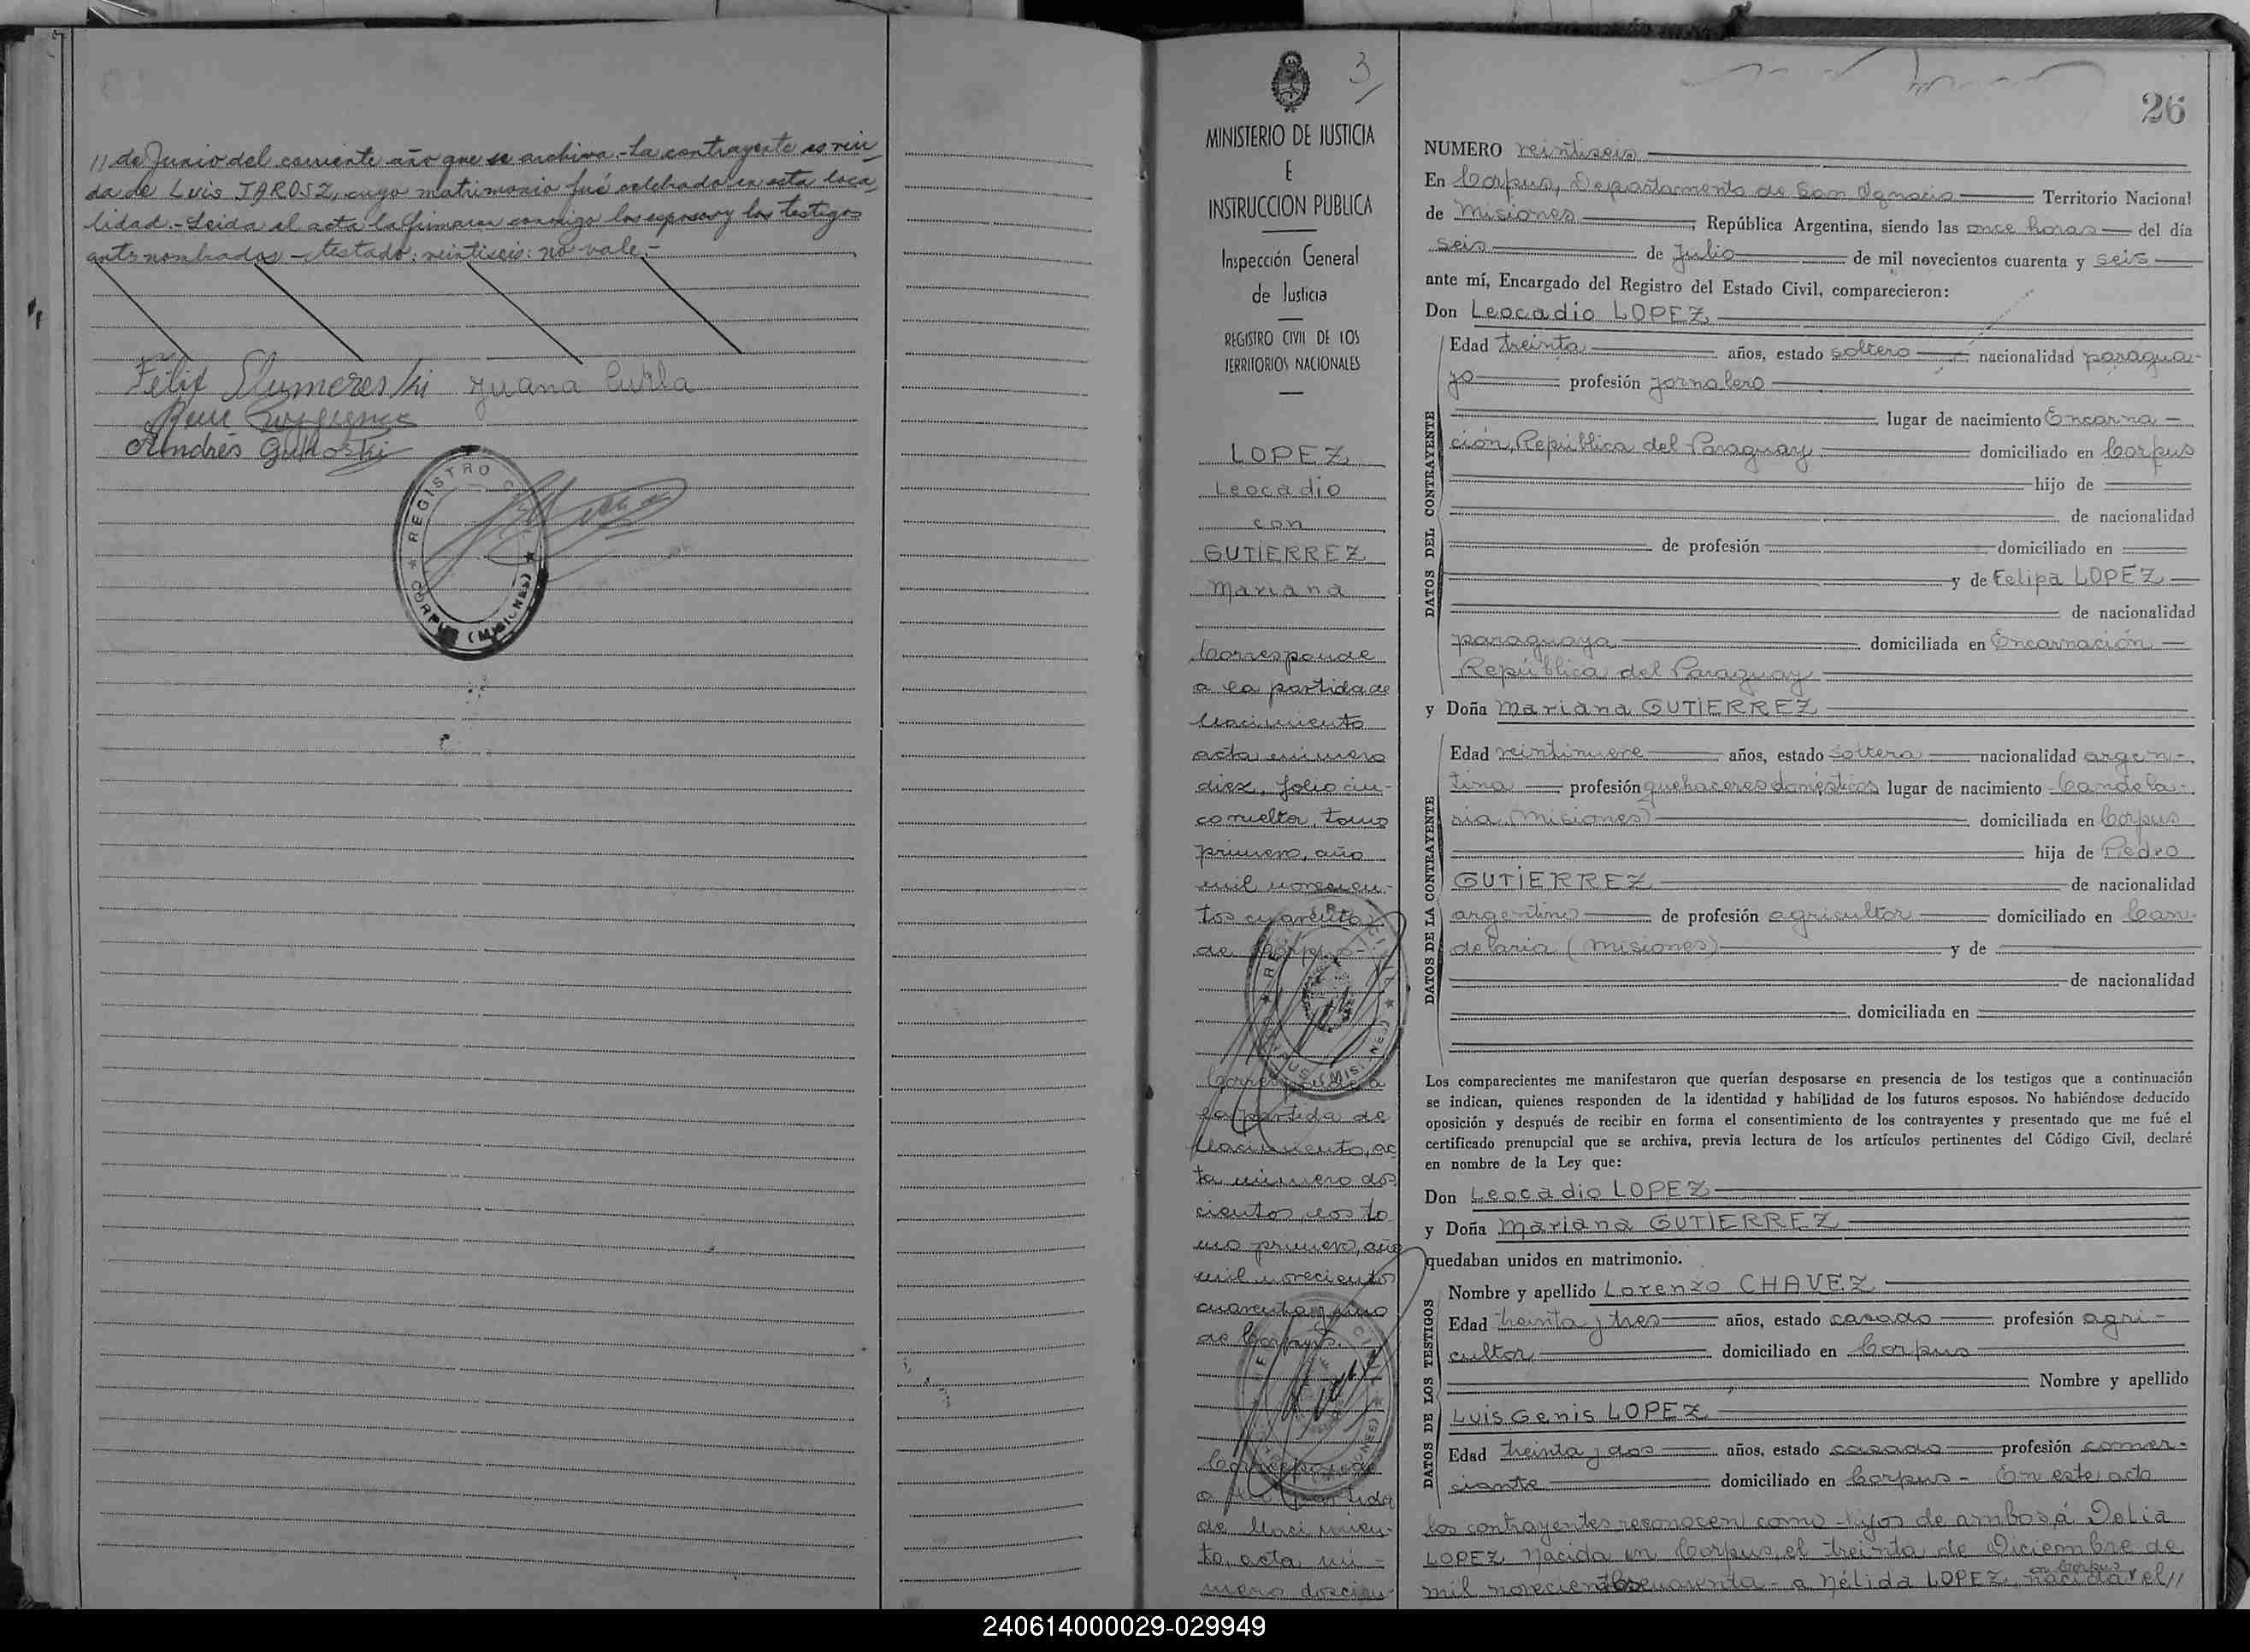 // de Junio del corriente año que se archiva.- La contrayente es viu-
da de Luis JAROSZ, cuyo matrimonio fué celebrado en esta loca-
lidad.- Leida el acta la firmaron conmigo los esposos y los testigos
antes nombrados.- testado: veintiseis: no vale.-
Félix
Juana
Andrés
REGISTRO
CORPUS (MISIONES)
3
MINISTERIO DE JUSTICIA
E
INSTRUCCION PUBLICA
Inspección General
de Justicia
REGISTRO CIVIL DE LOS
TERRITORIOS NACIONALES
LOPEZ
Leocadio
con
GUTIERREZ
Mariana
Corresponde
a la partida de
Nacimiento
acta número
diez, folio cin-
co vuelto, tomo
primero, año
mil novecien-
tos cuarenta
de Corpus.-
Corresponde a
la partida de
Nacimiento, ac
ta número dos
cientos, dos to
mo primero, año
mil novecientos
cuarenta y uno
de Corpus.
Corresponde
a la partida
de Nacimien-
to, acta nú-
mero doscien-
26
NUMERO veintiseis
En Corpus, Departamento de San Ignacio Territorio Nacional
de Misiones, República Argentina, siendo las once horas del día
seis de Julio de mil novecientos cuarenta y seis
ante mí, Encargado del Registro del Estado Civil, comparecieron:
Don Leocadio LOPEZ
DATOS DEL CONTRAYENTE
Edad treinta años, estado soltero nacionalidad paragua-
yo profesión jornalero
lugar de nacimiento Encarna-
ción, República del Paraguay domiciliado en Corpus
hijo de
de nacionalidad
de profesión domiciliado en
y de Felipa LOPEZ
de nacionalidad
paraguaya domiciliada en Encarnación
República del Paraguay
y Doña Mariana GUTIERREZ
DATOS DE LA CONTRAYENTE
Edad veintinueve años, estado soltera nacionalidad argen-
tina profesión quehaceres domésticos lugar de nacimiento Candela-
ria (Misiones) domiciliada en Corpus
hija de Pedro
GUTIERREZ de nacionalidad
argentino de profesión agricultor domiciliado en Can-
delaria (Misiones) y de
de nacionalidad
domiciliada en
Los comparecientes me manifestaron que querían desposarse en presencia de los testigos que a continuación
se indican, quienes responden de la identidad y habilidad de los futuros esposos. No habiéndose deducido
oposición y después de recibir en forma el consentimiento de los contrayentes y presentado que me fué el
certificado prenupcial que se archiva, previa lectura de los artículos pertinentes del Código Civil, declaré
en nombre de la Ley que:
Don Leocadio LOPEZ
y Doña Mariana GUTIERREZ
quedaban unidos en matrimonio.
DATOS DE LOS TESTIGOS
Nombre y apellido Lorenzo CHAVEZ
Edad treinta y tres años, estado casado profesión agri-
cultor domiciliado en Corpus
Nombre y apellido
Luis Genis LOPEZ
Edad treinta y dos años, estado casado profesión comer-
ciante domiciliado en Corpus - En este acto
los contrayentes reconocen como hijos de ambos, á Delia
LOPEZ nacida en Corpus, el treinta de Diciembre de
mil novecientos cuarenta - a Nélida LOPEZ, nacida en Corpus el //
240614000029-029949